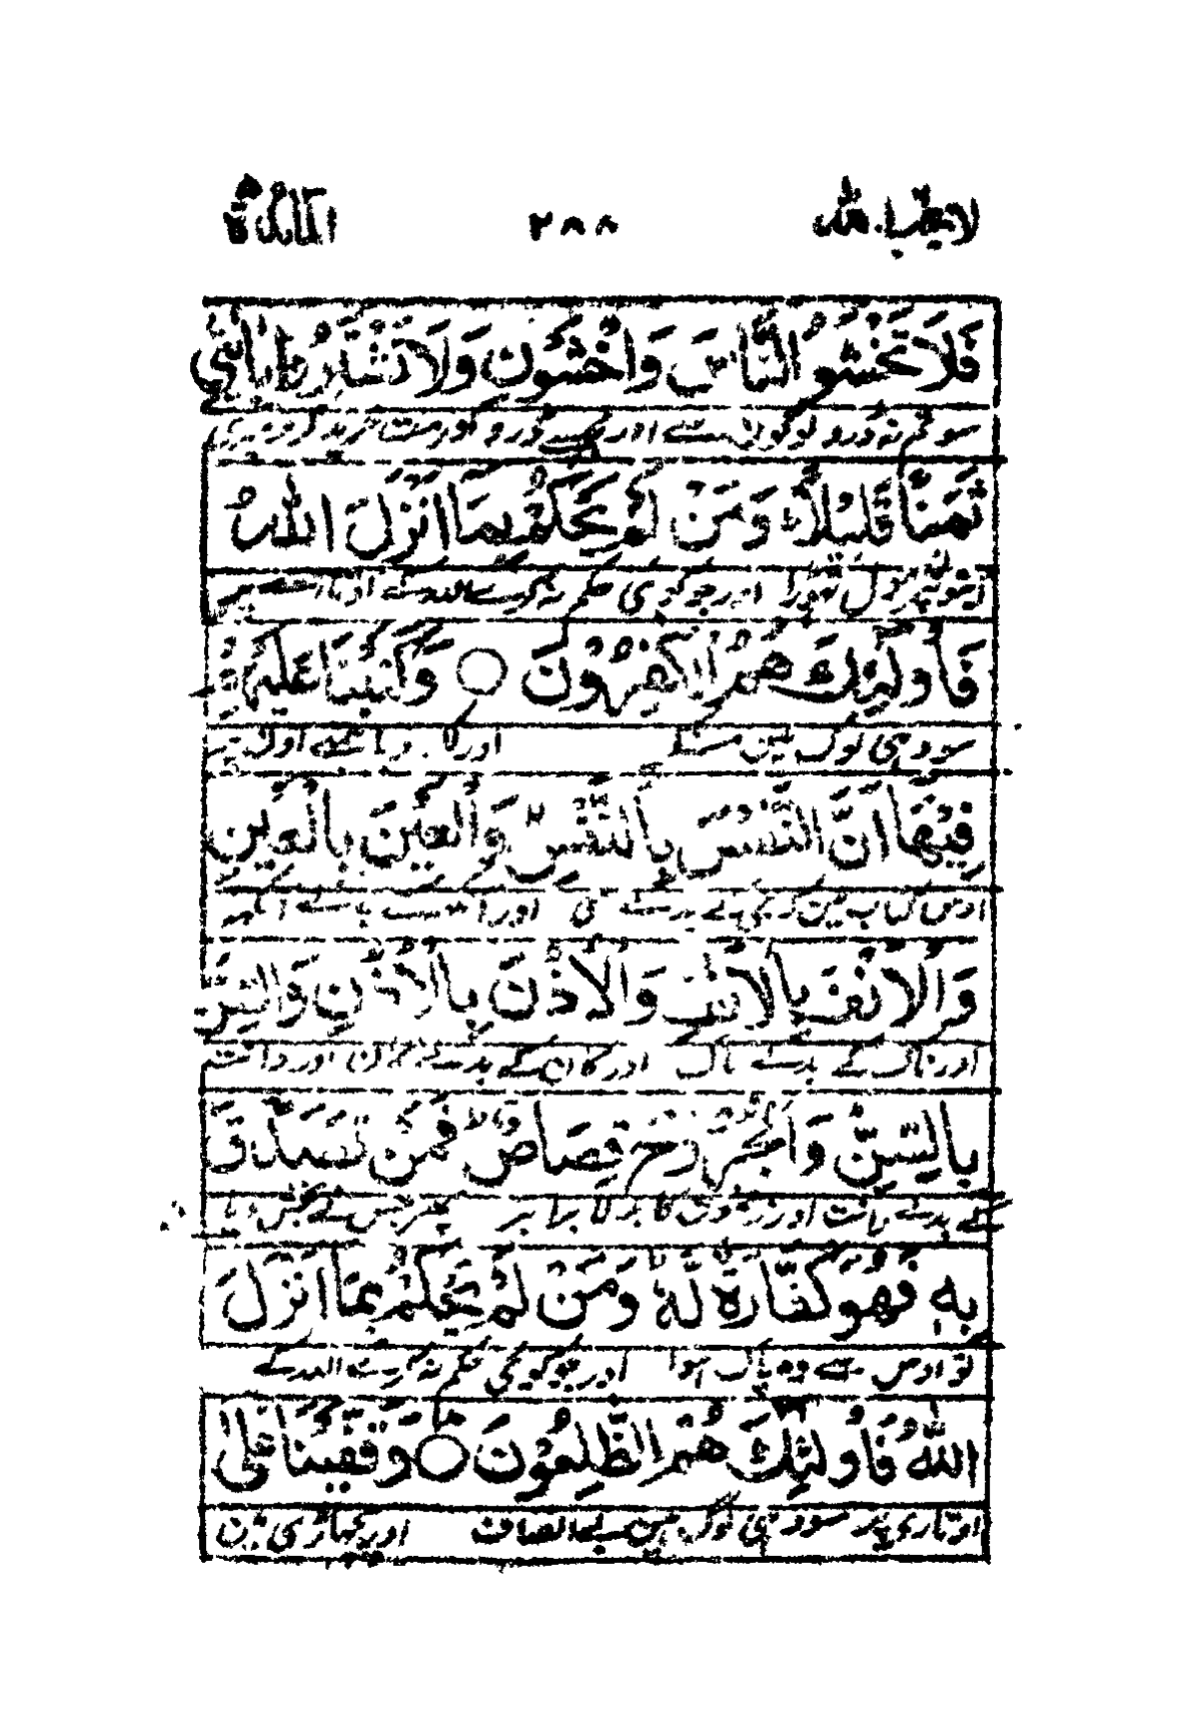 لا یحب اللہ ۲۸۸ المائدة
فَلَا تَخْشَوُا النَّاسَ وَاخْشَوْنِ وَلَا تَشْتَرُوْا بِاٰيٰتِيْ
سو تم نہ ڈرو لوگوں سے اور مجھ سے ڈرو اور مت خرید کرو میری
ثَمَنًا قَلِيْلًا وَمَنْ لَّمْ يَحْكُمْ بِمَا اَنْزَلَ اللّٰهُ
آیتوں پر مول تھوڑا اور جو کوئی حکم نہ کرے اللہ کے اوتارے پر
فَاُولٰٓئِكَ هُمُ الْكٰفِرُوْنَ ○ وَكَتَبْنَا عَلَيْهِمْ
سو وہی لوگ ہیں منکر اور لکھ دیا ہمنے اون پر
فِيْهَا اَنَّ النَّفْسَ بِالنَّفْسِ وَالْعَيْنَ بِالْعَيْنِ
اوس کتاب میں کہ جی کے بدلے جی اور آنکھ کے بدلے آنکھ
وَالْاَنْفَ بِالْاَنْفِ وَالْاُذُنَ بِالْاُذُنِ وَالسِّنَّ
اور ناک کے بدلے ناک اور کان کے بدلے کان اور دانت
بِالسِّنِّ وَالْجُرُوْحَ قِصَاصٌ فَمَنْ تَصَدَّقَ
کے بدلے دانت اور زخموں کا بدلا برابر پھر جس نے بخش دیا
بِهٖ فَهُوَ كَفَّارَةٌ لَّهٗ وَمَنْ لَّمْ يَحْكُمْ بِمَا اَنْزَلَ
تو اوس سے وہ پاک ہوا اور جو کوئی حکم نہ کرے اللہ کے
اللّٰهُ فَاُولٰٓئِكَ هُمُ الظّٰلِمُوْنَ ○ وَقَفَّيْنَا عَلٰٓى
اوتارے پر سو وہی لوگ ہیں بے انصاف اور پچھاڑی